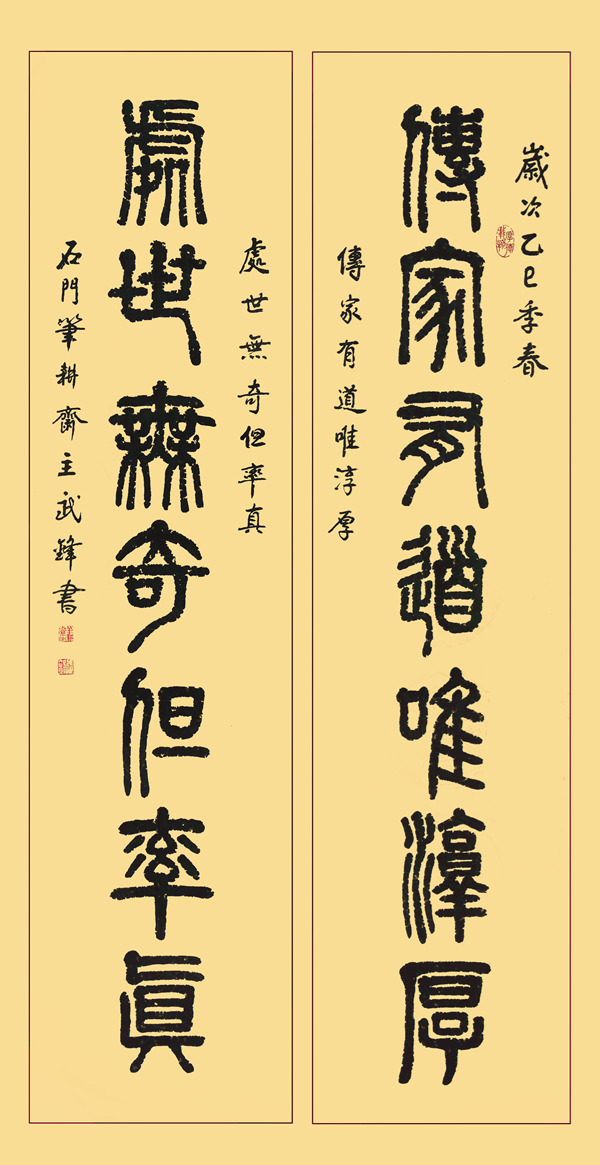 歲次乙巳季春
傳家有道唯淳厚
傳家有道唯淳厚
處世無奇但率真
處世無奇但率真
石門筆耕齋主武鋒書